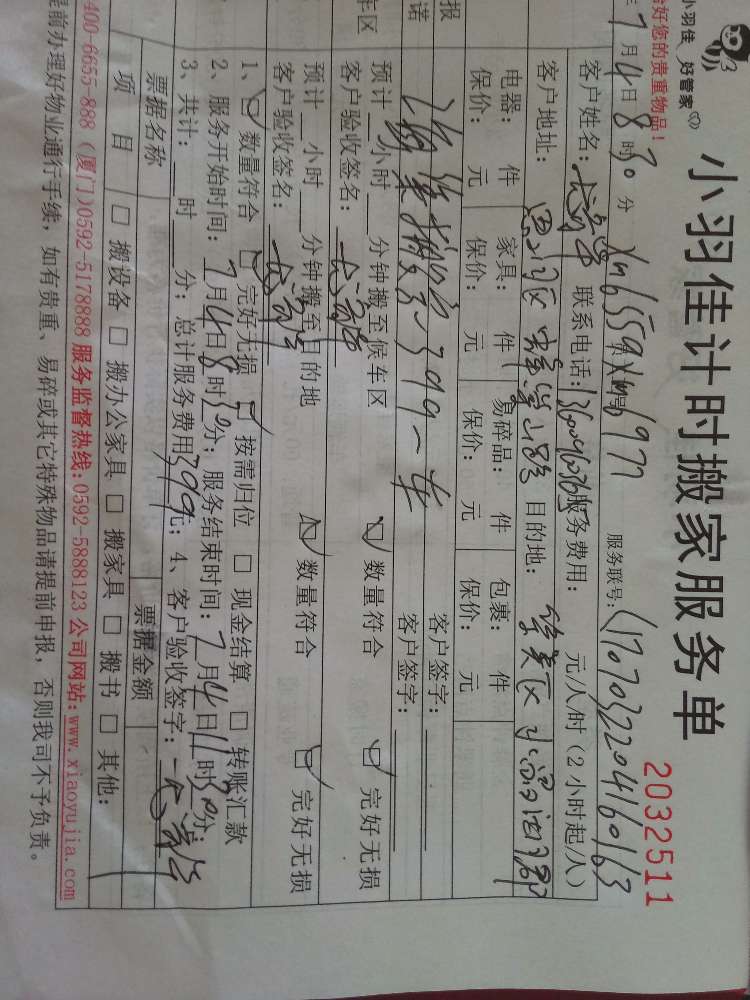 小羽佳 好管家
小羽佳计时搬家服务单
2032511
给好您的贵重物品！
7月4日8时30分 服务联号：
客户姓名： 联系电话： 服务费用： 元/人/时（2小时起/人）
客户地址： 思明区 目的地： 集美区
电器： 件 家具： 件 易碎品： 件 包裹： 件
保价： 元 保价： 元 保价： 元 保价： 元
报 客户签字：
诺 399一车 客户签字：
预计 小时 分钟搬至候车区 数量符合 完好无损
车区 客户验收签名：
预计 小时 分钟搬至目的地 数量符合 完好无损
客户验收签名：
1、 数量符合 完好无损 按需归位 现金结算 转账汇款
2、服务开始时间：7月4日8时30分；服务结束时间：7月4日11时30分；
3、共计： 时 分；总计服务费用399元；4、客户验收签字：
票据名称 票据金额
项 目 搬设备 搬办公家具 搬家具 搬书 其他：
400-6655-888（厦门）0592-5178888 服务监督热线：0592-5888123 公司网站：www.xiaoyujia.com
提前办理好物业通行手续，如有贵重、易碎或其它特殊物品请提前申报，否则我司不予负责。